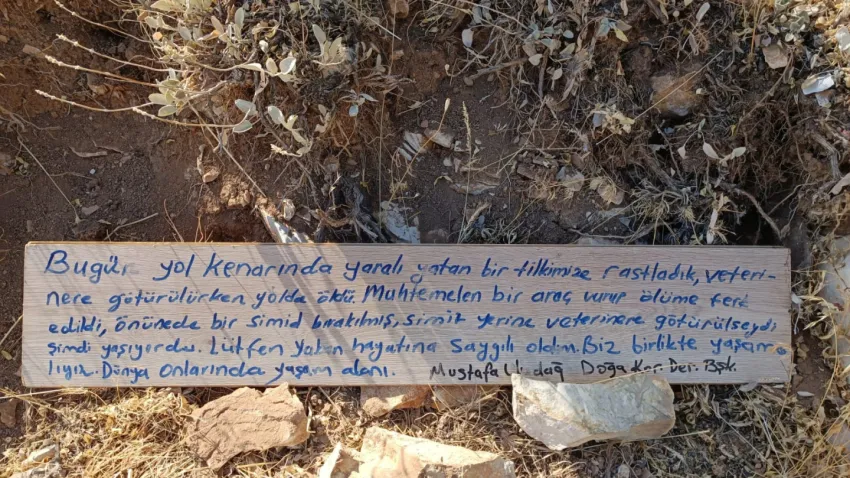 Bugün yol kenarında yaralı yatan bir tilkimize rastladık, veteri-
nere götürülürken yolda öldü. Muhtemelen bir araç vurup ölüme terk
edildi, önünede bir simid bırakılmış, simit yerine veterinere götürülseydi
şimdi yaşıyordu. Lütfen Yaban hayatına Saygılı olalım. Biz birlikte yaşam
lıyız. Dünya onlarında yaşam alanı. Mustafa Doğa Kor. Der. Bşk.